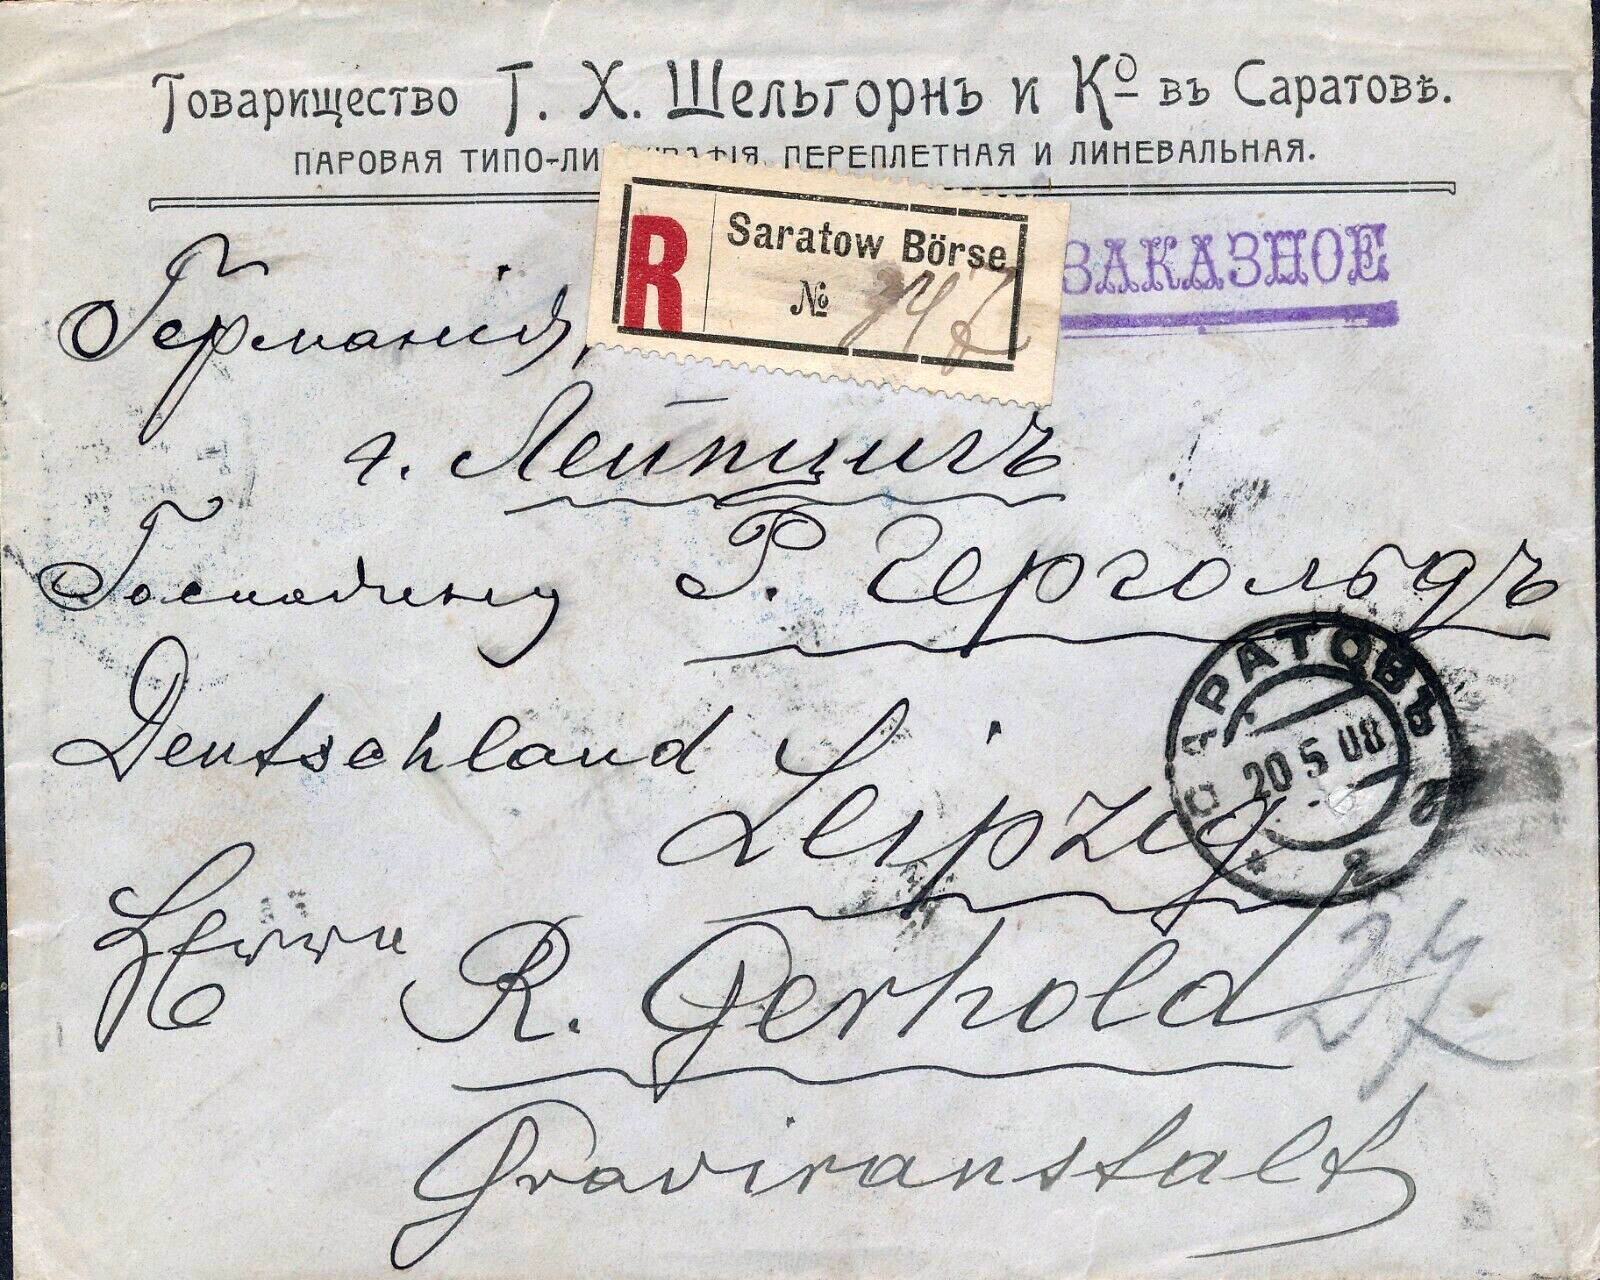 Товарищество Г. Х. Шельгорнъ и Ко въ Саратовѣ.
ПАРОВАЯ ТИПО-ЛИ ПЕРЕПЛЕТНАЯ И ЛИНЕВАЛЬНАЯ.
R Saratow Börse
№ 347
ЗАКАЗНОЕ
Германія,
г. Лейпцигъ
Господину Р. Гергольдъ
САРАТОВЪ
20 5 08
Deutschland Leipzig
Herrn R. Gerhold
27
Graviranstalt